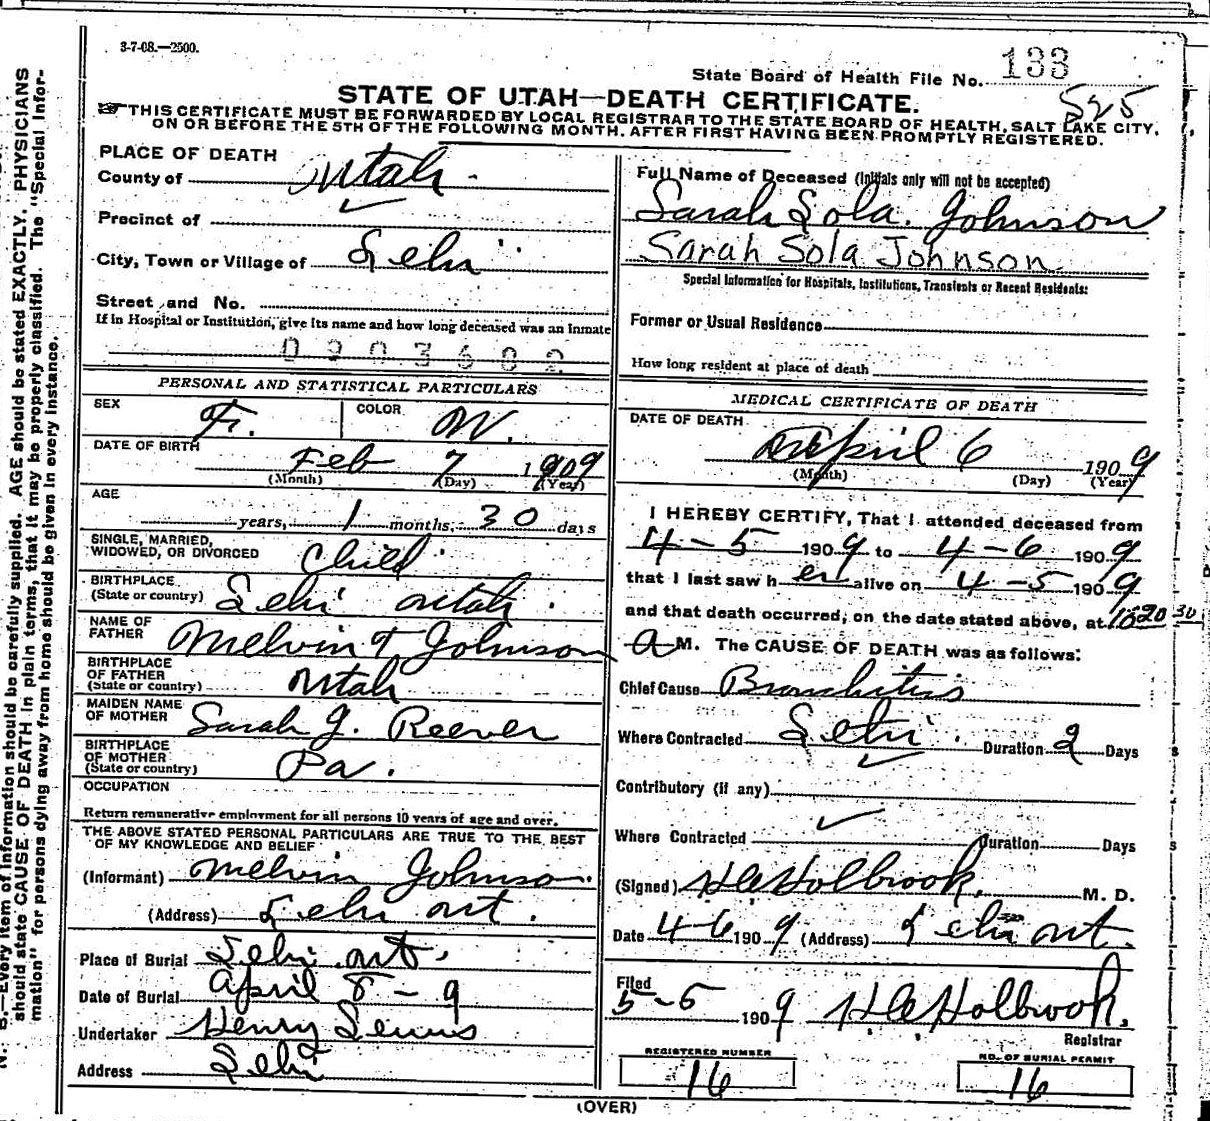 3-7-08.—2500.
State Board of Health File No. 133
525
STATE OF UTAH—DEATH CERTIFICATE.
THIS CERTIFICATE MUST BE FORWARDED BY LOCAL REGISTRAR TO THE STATE BOARD OF HEALTH, SALT LAKE CITY,
ON OR BEFORE THE 5TH OF THE FOLLOWING MONTH. AFTER FIRST HAVING BEEN PROMPTLY REGISTERED.
PLACE OF DEATH
County of Utah
Precinct of
City, Town or Village of Lehi
Street and No.
If in Hospital or Institution, give its name and how long deceased was an inmate
0203602
PERSONAL AND STATISTICAL PARTICULARS
SEX F. COLOR W.
DATE OF BIRTH Feb 7 1909
(Month) (Day) (Year)
AGE
years, 1 months, 30 days
SINGLE, MARRIED,
WIDOWED, OR DIVORCED Child
BIRTHPLACE
(State or country) Lehi Utah.
NAME OF
FATHER Melvin T Johnson
BIRTHPLACE
OF FATHER
(State or country) Utah
MAIDEN NAME
OF MOTHER Sarah J. Reever
BIRTHPLACE
OF MOTHER
(State or country) Pa.
OCCUPATION
Return remunerative employment for all persons 10 years of age and over.
THE ABOVE STATED PERSONAL PARTICULARS ARE TRUE TO THE BEST
OF MY KNOWLEDGE AND BELIEF
(Informant) Melvin Johnson.
(Address) Lehi Ut.
Place of Burial Lehi Ut.
Date of Burial April 8-9
Undertaker Henry Lewis
Address Lehi
Full Name of Deceased (Initials only will not be accepted)
Sarah Lola. Johnson
Sarah Sola Johnson
Special Information for Hospitals, Institutions, Transients or Recent Residents:
Former or Usual Residence
How long resident at place of death
MEDICAL CERTIFICATE OF DEATH
DATE OF DEATH
April 6 1909
(Month) (Day) (Year)
I HEREBY CERTIFY, That I attended deceased from
4-5 1909 to 4-6 1909
that I last saw her alive on 4-5 1909
and that death occurred, on the date stated above, at 30
a M. The CAUSE OF DEATH was as follows:
Chief Cause Bronchitis
Where Contracted Lehi. Duration 2 Days
Contributory (if any)
Where Contracted Duration Days
(Signed) H Holbrook. M. D.
Date 4-6 1909 (Address) Lehi Ut.
Filed
5-5 1909 H Holbrook.
Registrar
REGISTERED NUMBER
16
NO. OF BURIAL PERMIT
16
(OVER)
N. B.—Every item of information should be carefully supplied. AGE should be stated EXACTLY. PHYSICIANS
should state CAUSE OF DEATH in plain terms, that it may be properly classified. The "Special Infor-
mation" for persons dying away from home should be given in every instance.